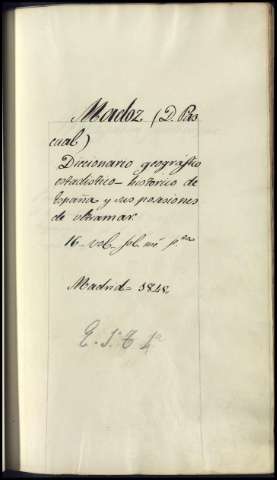 Madoz (D. Pas
cual)
Diccionario geográfico
estadistico-historico de
España y sus posesiones
de ultramar
16 vol. fol. mê p.ta
Madrid = 1848
E. 1º T 4ª